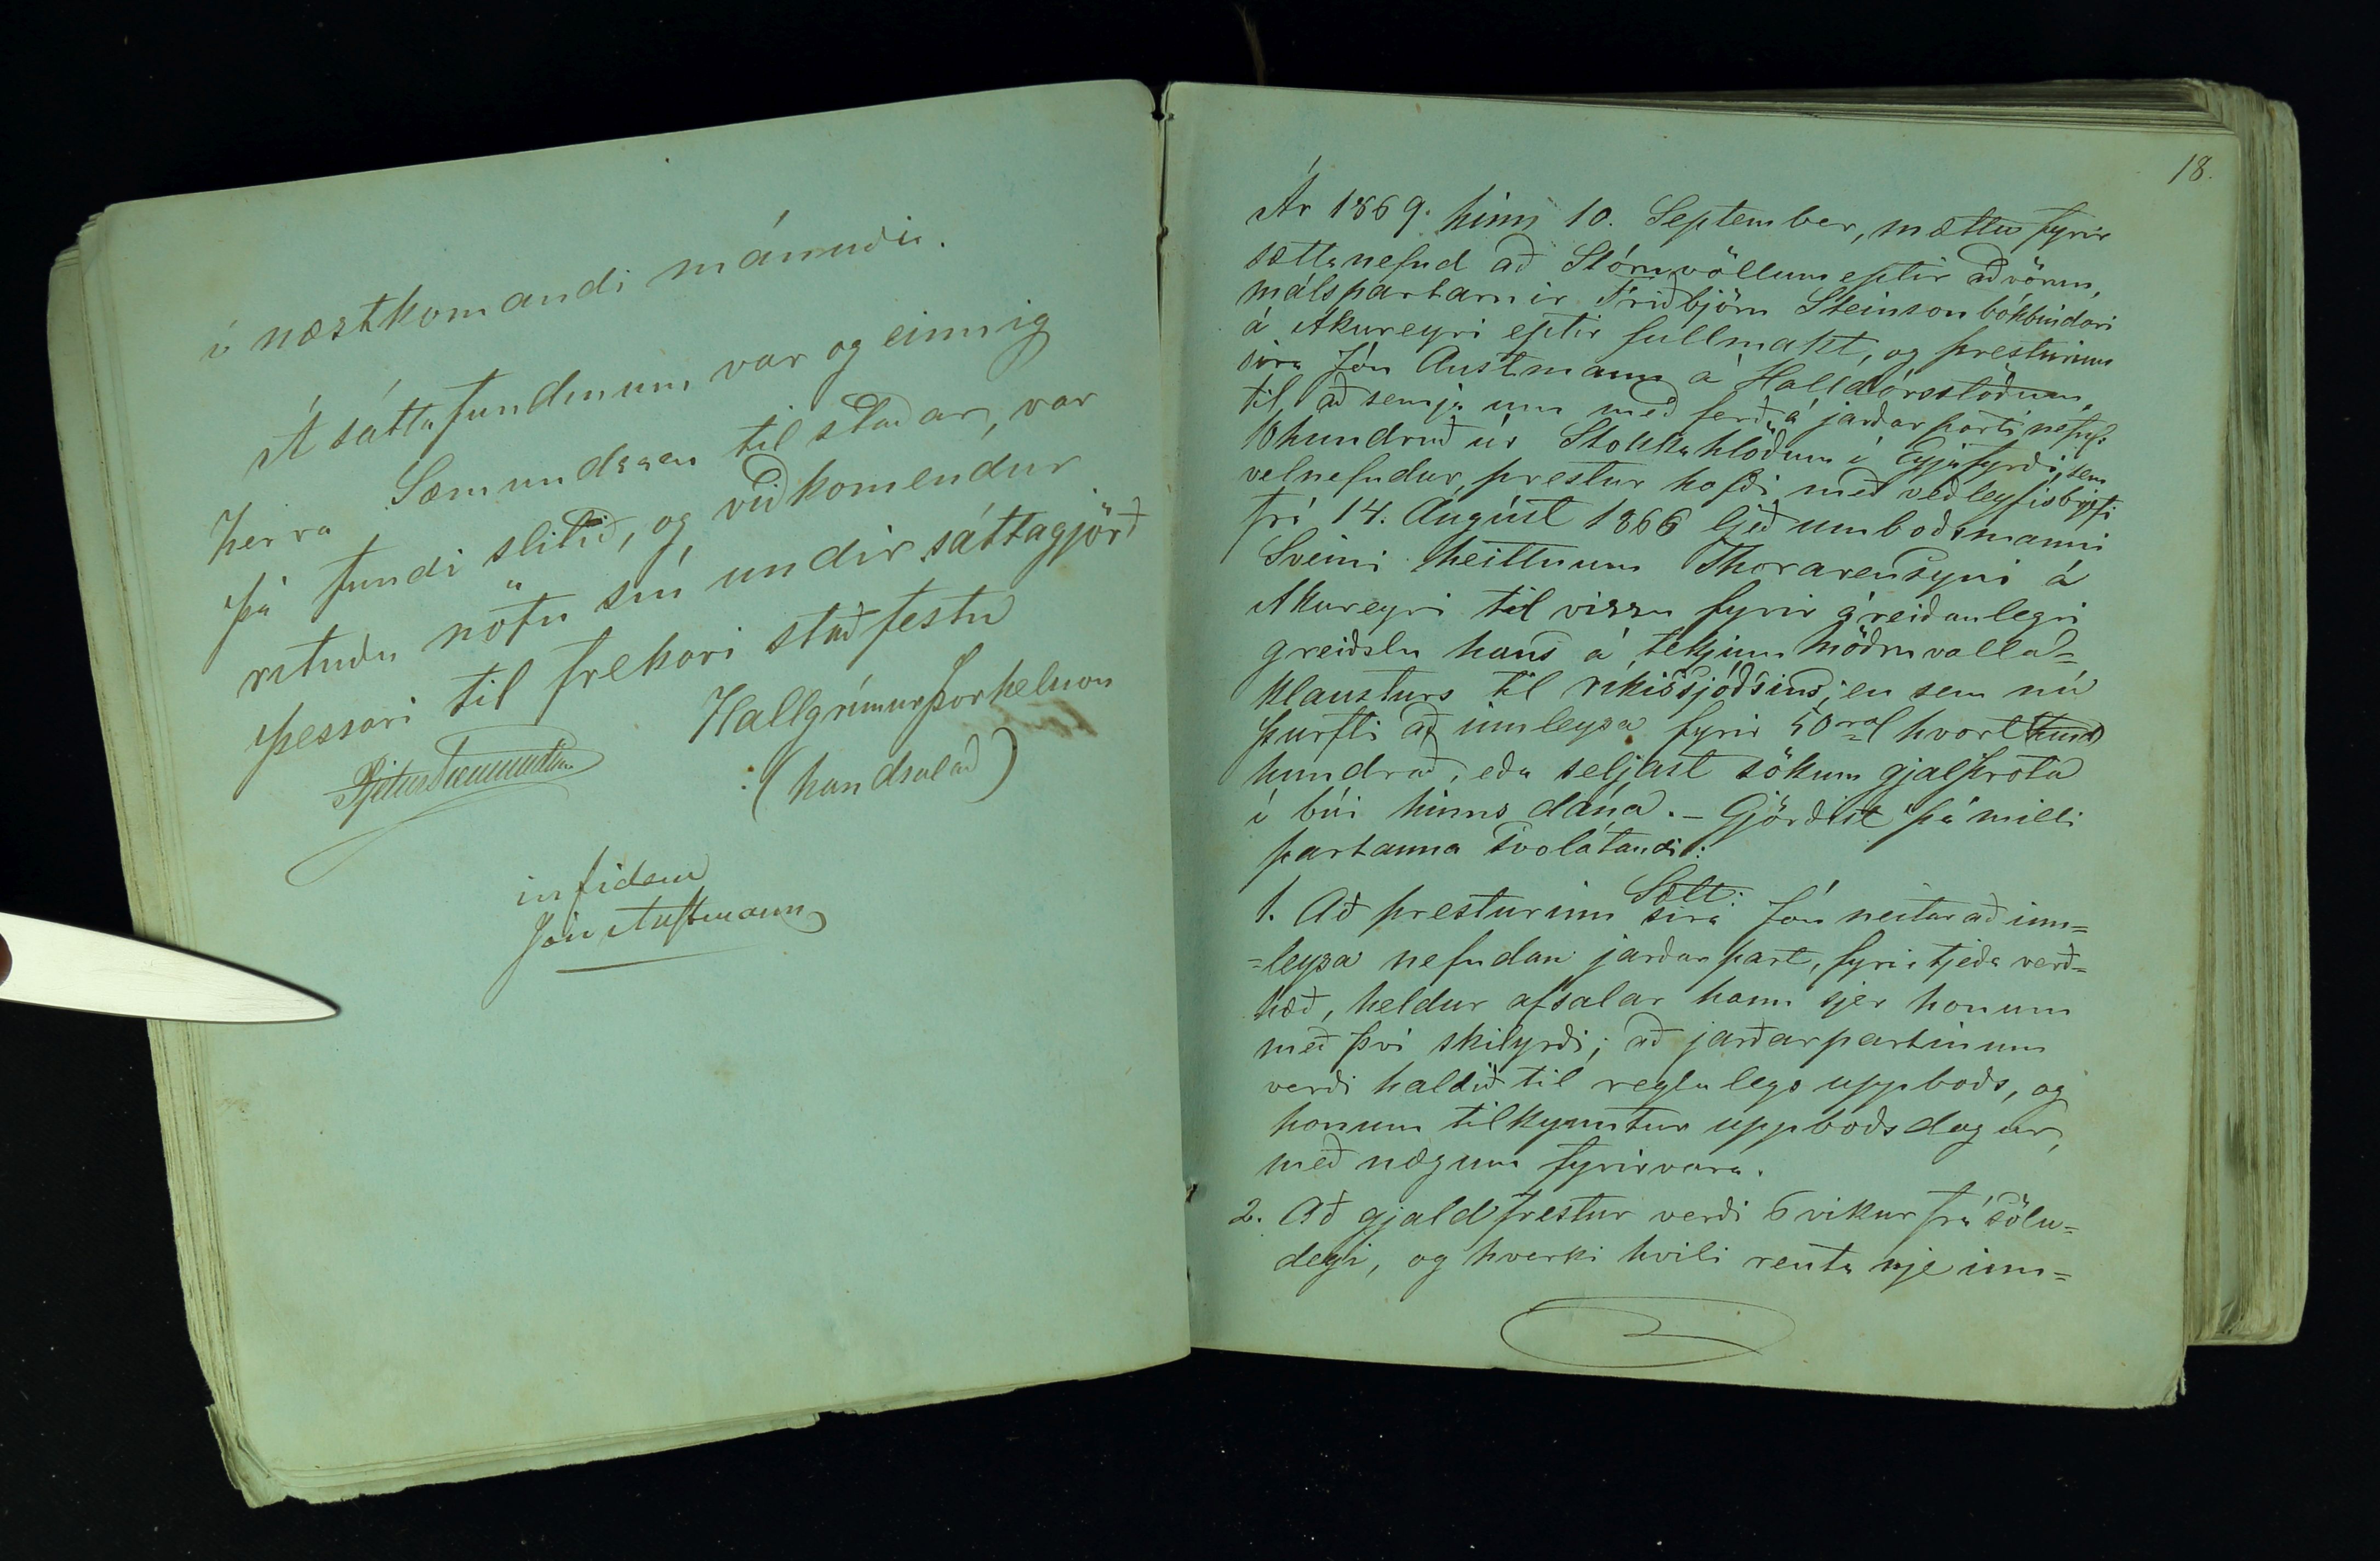 í næstkomandi mánuði.
Á sáttafundinum var og einnig
herra Sæmundssen til staðar, var
þá fundi slitið, og viðkomendur
rituðu nöfn sín undir sáttagjörð
þessari til frekari staðfestu
Hallgrímur Þorkelsson
(handsalað)
in fidem
Jón Austmann
18.
Ár 1869. hinn 10. September, mættu fyrir
sættanefnd að Stóruvöllum eptir aðvörun,
málspartarnir Friðbjörn Steinson bókbindari
á Akureyri eptir fullmakt, og presturinn
síra Jón Austmann á Halldórsstöðum,
til að semja um með ferð á jarðarparti nefnil.
10 hundruð úr Stokkahlöðum í Eyjafyrði, sem
velnefndur prestur hafði með veðleyfisbrjefi
frá 14. Ágúst 1866 ljeð umboðsmanni
Sveini heitnum Thorarensyni á
Akureyri til vissu fyrir áreiðanlegri
greiðslu hans á tekjum Möðruvalla-
klausturs til ríkissjóðsins; en sem nú
þurfti að innleysa fyrir 50 rd hvort hund
hundrað, eða seljast sökum gjalþrota
í búi hinns dána. - Gjörðist þá milli
partanna svolátandi:
Sætt:
1. Að presturinn síra Jón neitar að inn=
=leysa nefndan jarðar part, fyrir tjeða verð=
hæð, heldur afsalar hann sjer honum
með því skilyrði; að jarðarpartinum
verði haldið til reglulegs uppboðs, og
honum tilkynntur uppboðsdagur,
með nægum fyrirvara.
2. Að gjaldfrestur verði 6 vikur frá sölu=
degi, og hverki hvíli renta nje inn=